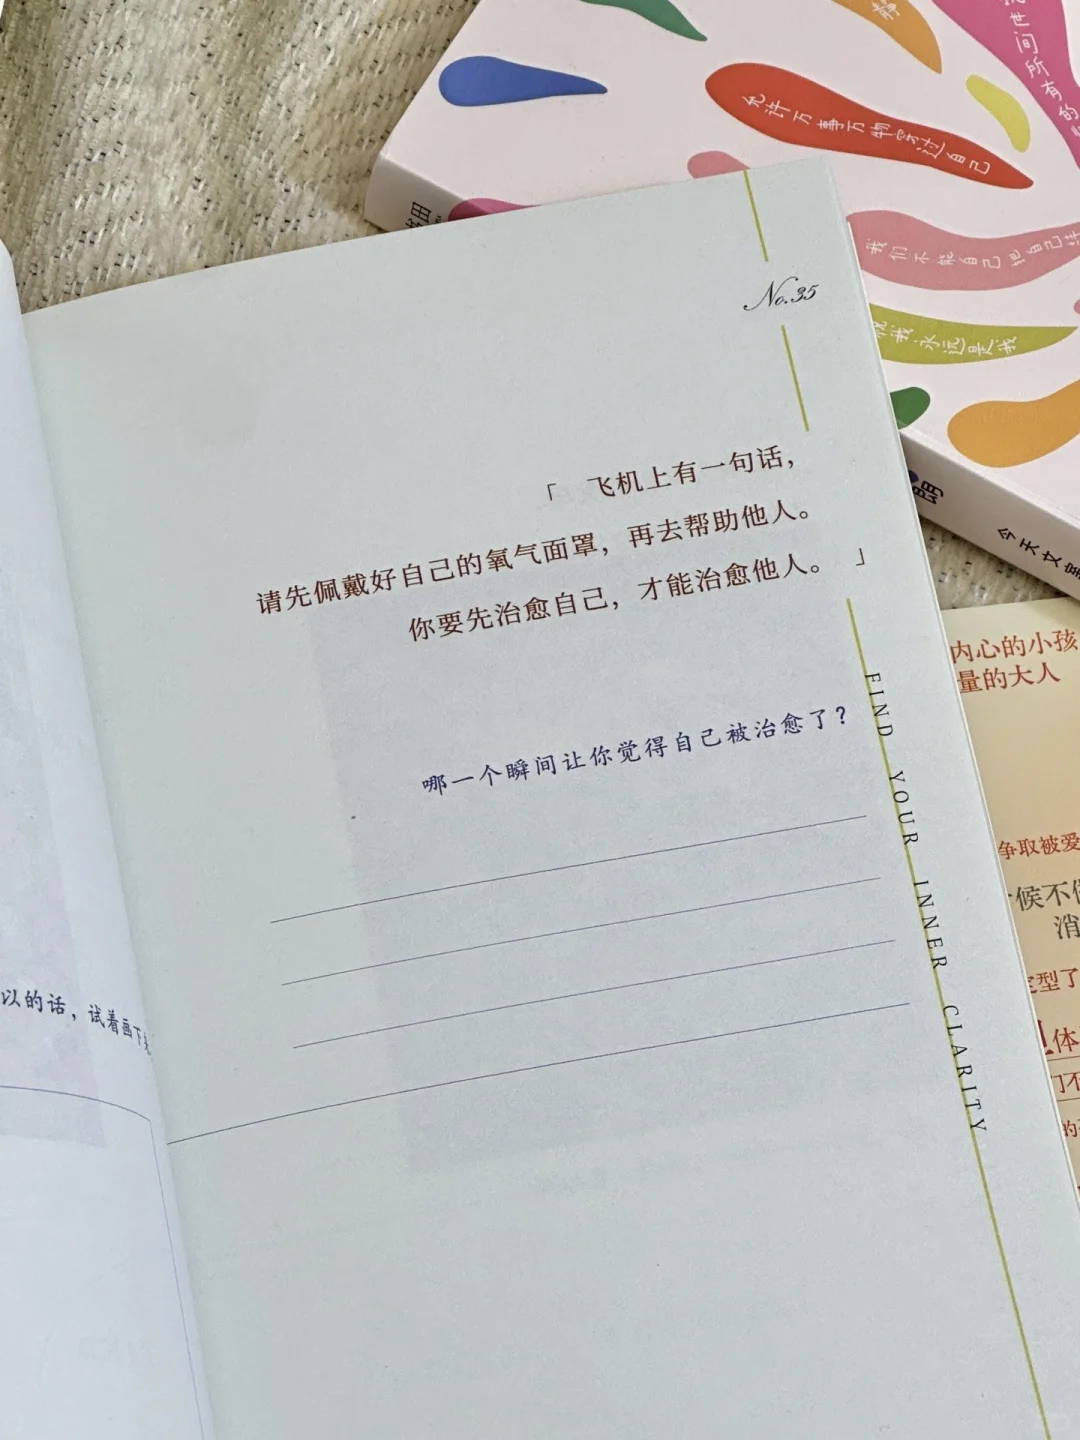 No.35
「 飞机上有一句话，
请先佩戴好自己的氧气面罩，再去帮助他人。
你要先治愈自己，才能治愈他人。 」
哪一个瞬间让你觉得自己被治愈了？
FIND YOUR INNER CLARITY
以的话，试着画下
间所有的
允许万事万物穿过自己
我们不能自己把自己
我永远是我
田
明
今天文
内心的小孩
量的大人
争取被爱
候不
消
定型了
体
的